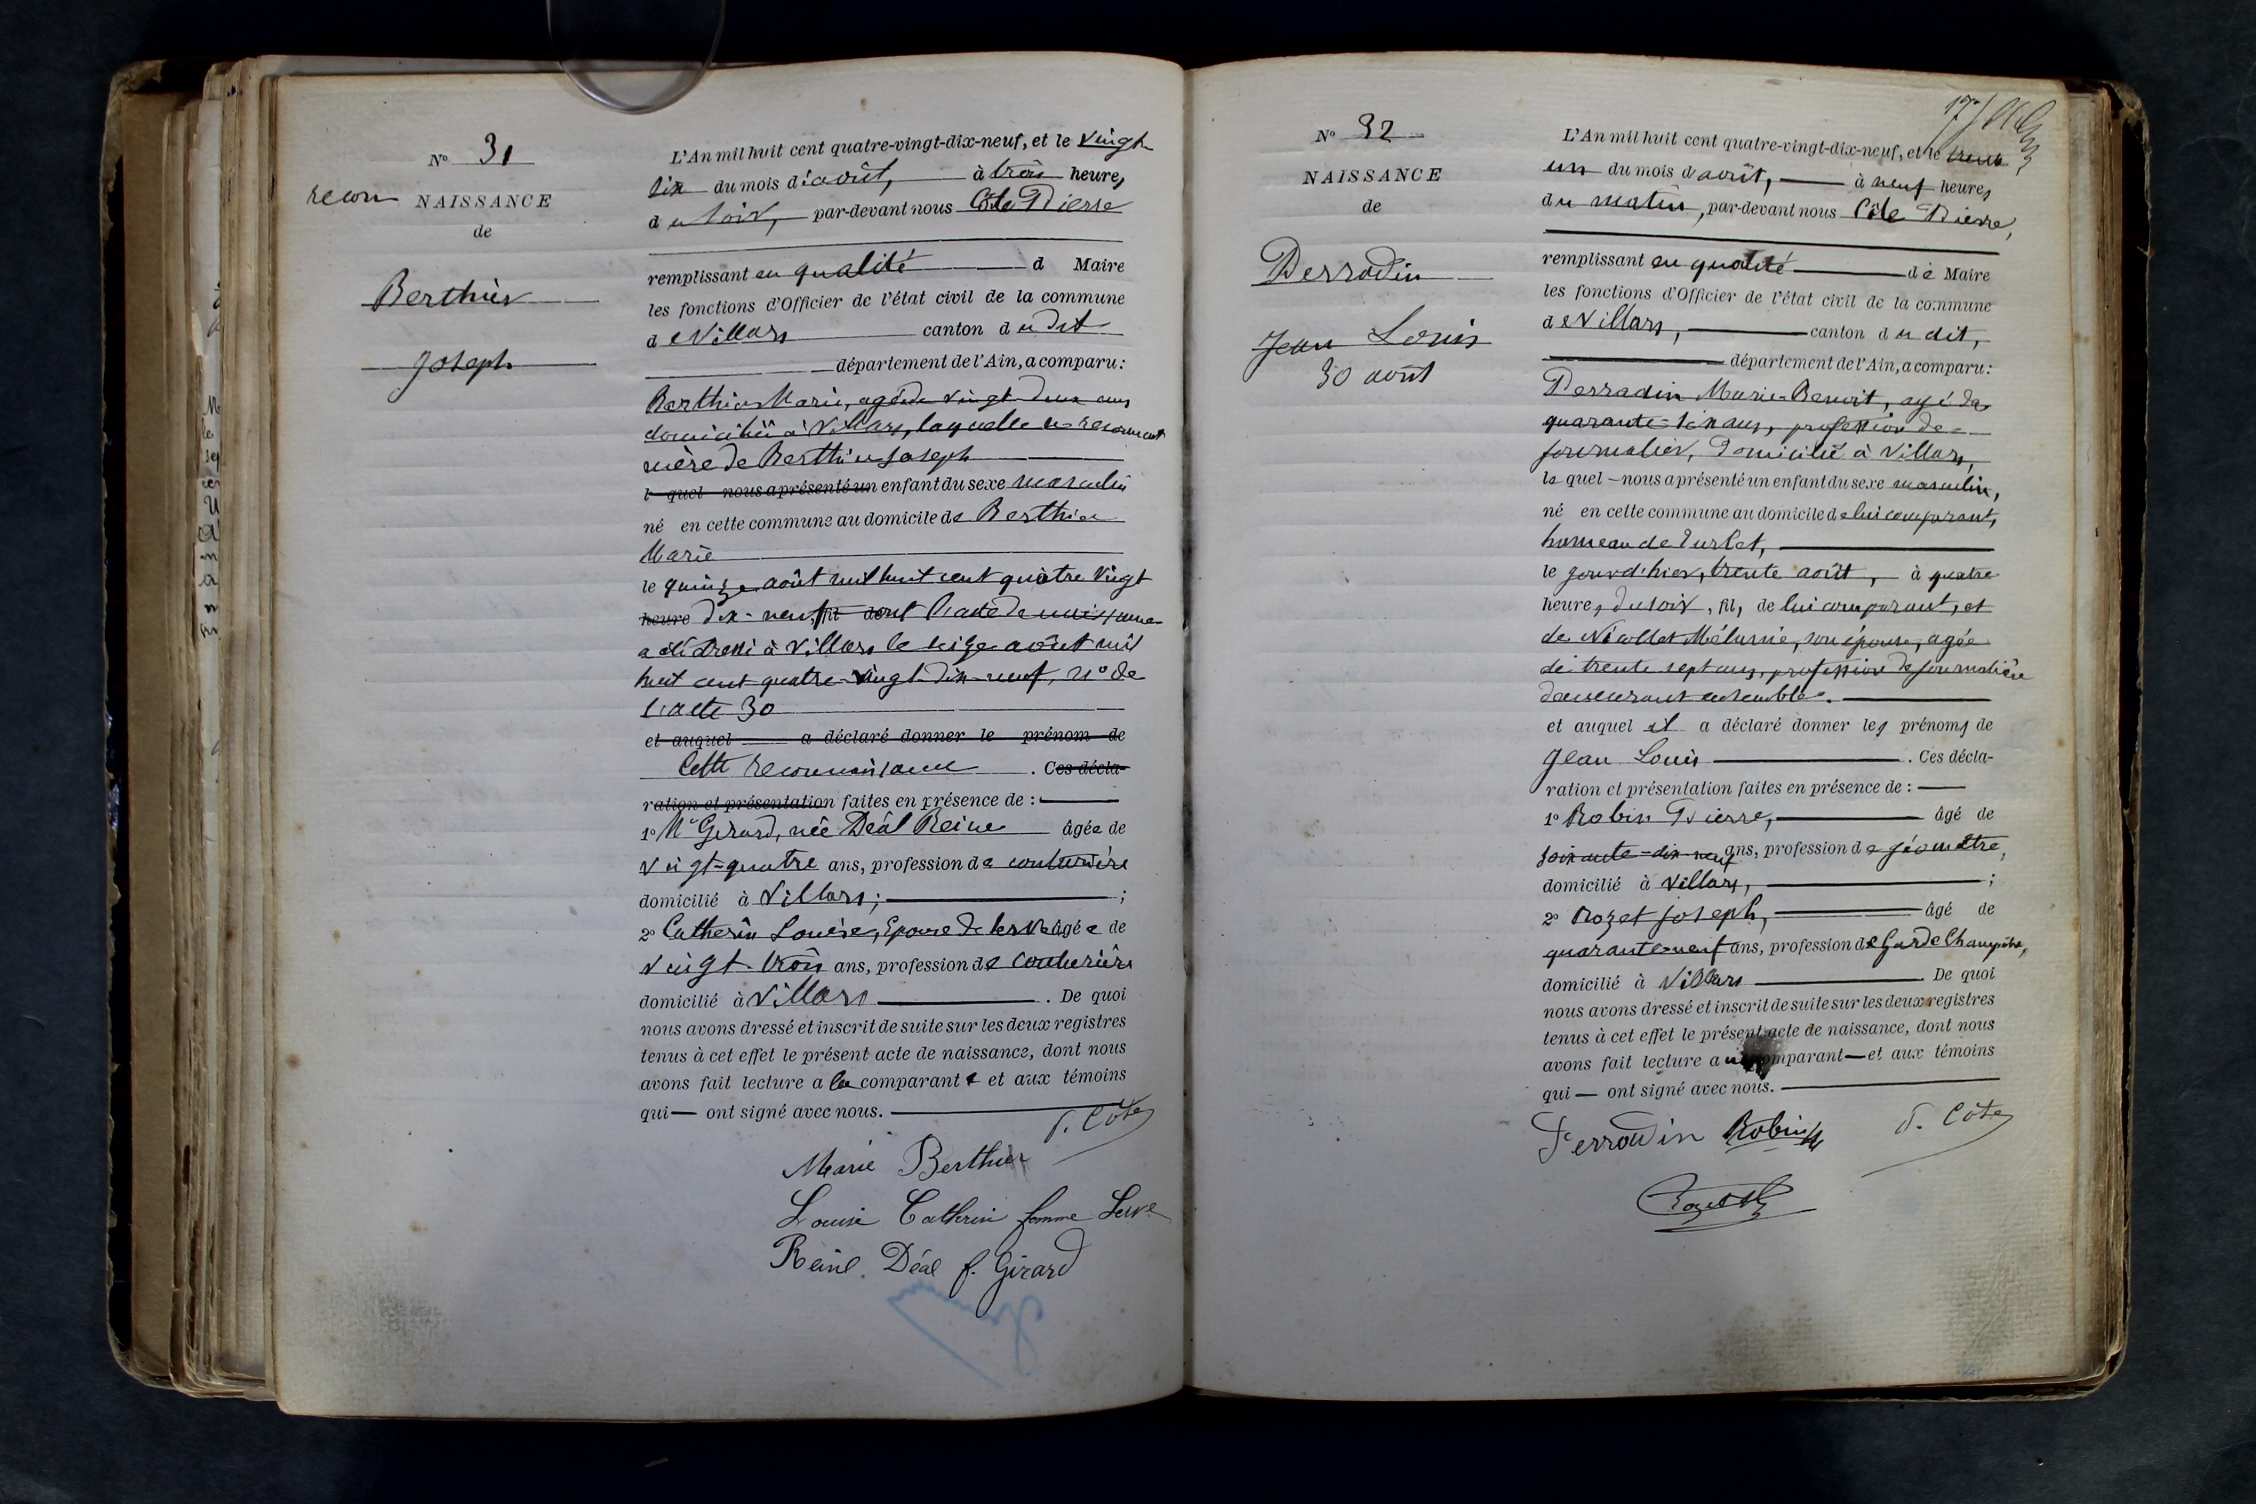 N° 31
recon NAISSANCE
de
Berthier
Joseph
L'An mil huit cent quatre-vingt-dix-neuf, et le vingt
six du mois d'août, à trois heures
du soir, par-devant nous Côte Pierre
remplissant en qualité d Maire
les fonctions d'Officier de l'état civil de la commune
de Villars canton du dit
département de l'Ain, a comparu:
Berthier Marie, agée de vingt deux ans
domiciliée à Villars, laquelle se reconnait
mère de Berthier Joseph
l quel nous a présenté un enfant du sexe masculin
né en cette commune au domicile de Berthier
Marie
le quinze août mil huit cent quatre vingt
heure dix-neuf, fil dont l'acte de naissance
a été dressé à Villars le seize août mil
huit cent quatre-vingt dix-neuf, n° de
l'acte 30
et auquel a déclaré donner le prénom de
Cette reconnaissance . Ces décla-
ration et présentation faites en présence de :
1° Me Girard, née Déal Reine âgée de
vingt-quatre ans, profession de couturière
domicilié à Villars; ;
2° Catherin Louise, Epouse de Serve âgée de
vingt-trois ans, profession de couturière
domicilié à Villars . De quoi
nous avons dressé et inscrit de suite sur les deux registres
tenus à cet effet le présent acte de naissance, dont nous
avons fait lecture a la comparante et aux témoins
qui — ont signé avec nous.
P. Côte
Marie Berthier
Louise Catherin femme Serve
Reine Déal f. Girard
N° 32
NAISSANCE
de
Perrodin
Jean Louis
30 août
17
L'An mil huit cent quatre-vingt-dix-neuf, et le trente
un du mois d'août, à neuf heures
du matin, par-devant nous Côte Pierre,
remplissant en qualité de Maire
les fonctions d'Officier de l'état civil de la commune
de Villars, canton du dit,
département de l'Ain, a comparu:
Perrodin Marie-Benoit, agé de
quarante-six ans, profession de
journalier, domicilié à Villars,
le quel - nous a présenté un enfant du sexe masculin,
né en cette commune au domicile de lui comparant,
hameau de Turlet,
le jour d'hier, trente août, à quatre
heures du soir, fils de lui comparant, et
de Nicollet Mélanie, son épouse, agée
de trente sept ans, profession de journalière
demeurant ensemble.
et auquel il a déclaré donner les prénoms de
Jean Louis . Ces décla-
ration et présentation faites en présence de :
1° Robin Pierre, âgé de
soixante-dix-neuf ans, profession de géomètre,
domicilié à Villars, ;
2° Rozet Joseph, âgé de
quarante-neuf ans, profession de Garde Champêtre,
domicilié à Villars De quoi
nous avons dressé et inscrit de suite sur les deux registres
tenus à cet effet le présent acte de naissance, dont nous
avons fait lecture au comparant — et aux témoins
qui — ont signé avec nous.
Perrodin Robin P. Côte
Rozet